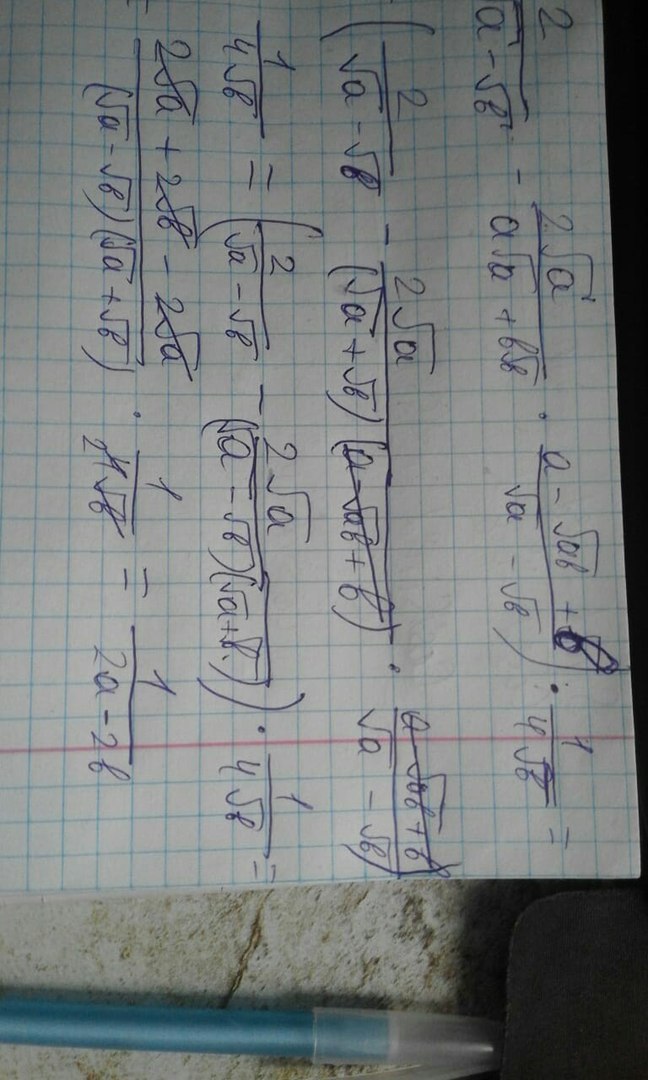 2/(√a - √b) - 2√a/(a√a + b√b) · (a - √ab + b)/(√a - √b)) · 1/(4√b) =
(2/(√a - √b) - 2√a/((√a + √b)(a - √ab + b)) · (a - √ab + b)/(√a - √b)) ·
1/(4√b) = (2/(√a - √b) - 2√a/((√a - √b)(√a + √b))) · 1/(4√b) =
= (2√a + 2√b - 2√a)/((√a - √b)(√a + √b)) · 1/(4√b) = 1/(2a - 2b)